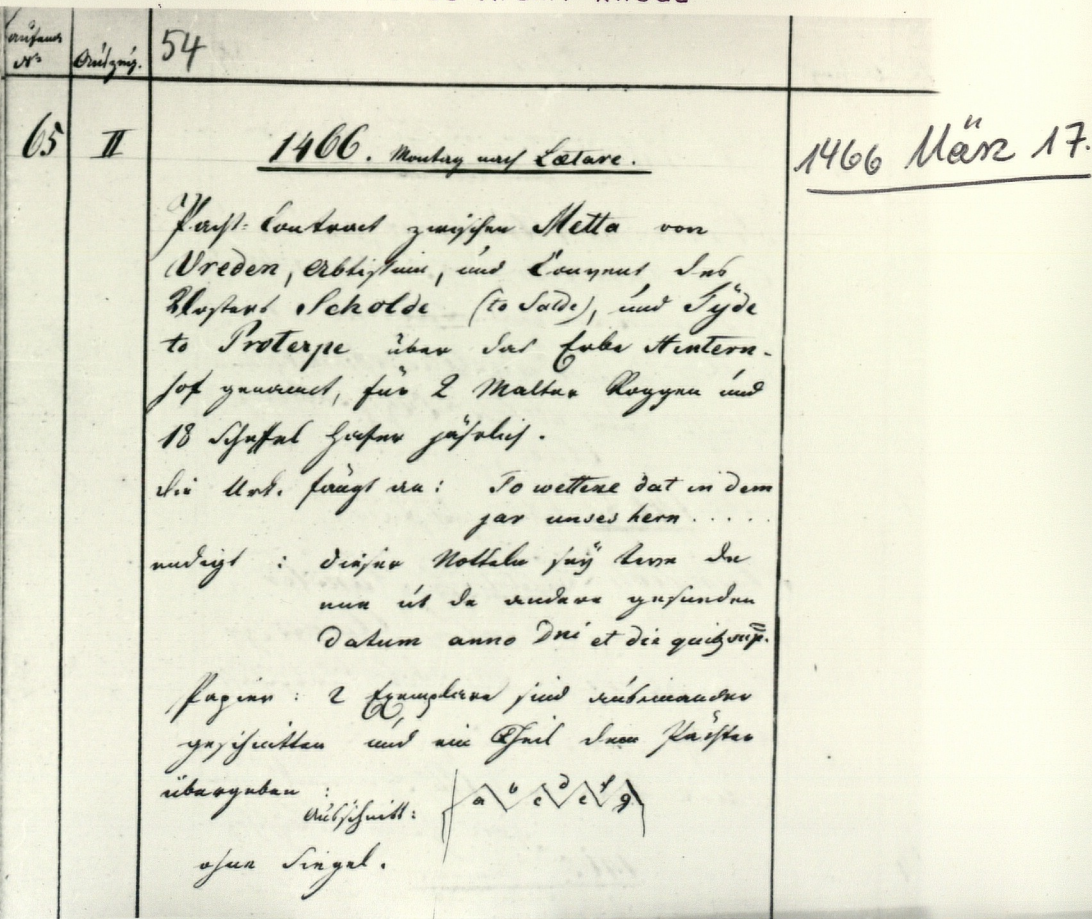 Laufende
No
Auszug.
54
65
II
1466. Montag nach Lætare.
1466 März 17.
Pacht-Contract zwischen Metta von
Vreden, Abtissinn, und Convent des
Klosters Scholde (to Solde), und Tyde
to Proterpe über das Erbe Hintern-
hof genannt, für 2 Malter Roggen und
18 Scheffel Hafer jährlich.
die Urk. fängt an: To wettene dat in dem
jar unses hern . . . . .
endigt : dieser Nottelen sÿ twe de
ene ut de andere gesneden
datum anno Dni et die quibus sup.
Papier: 2 Exemplare sind auseinander
geschnitten und ein Theil dem Pächter
übergeben :
Ausschnitt:
a b c d e f g
ohne Siegel.